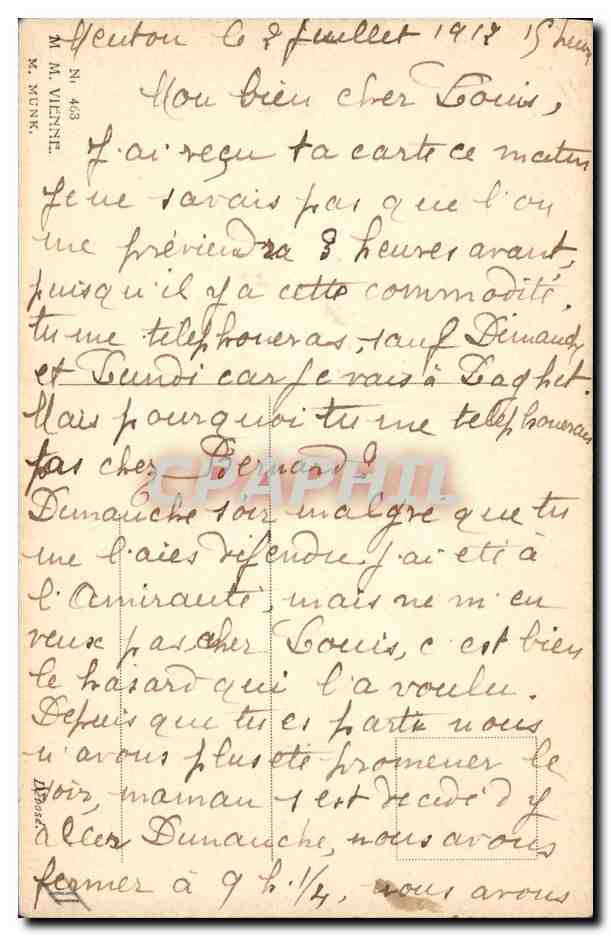 Menton le 2 Juillet 1917 15 heures
Mon bien cher Louis,
J'ai reçu ta carte ce matin
Je ne savais pas que l'on
me préviendra 3 heures avant,
puisqu'il y a cette commodité,
tu me telephoneras, sauf Dimanche
et Lundi car je vais à Laghet.
Mais pourquoi tu me telephonerais
pas chez Bernard?
Dimanche soir malgré que tu
me l'aies défendu j'ai eté à
l'Amirauté, mais ne m'en
veux pas, cher Louis, c'est bien
le hasard qui l'a voulu.
Depuis que tu es parti nous
n'avons plus eté promener le
soir, maman s'est decidé d'y
aller Dimanche, nous avons
fermer à 9 h. 1/4, nous avons
No 463
M. M. VIENNE.
M. MUNK.
Déposé.
CPAPHIL